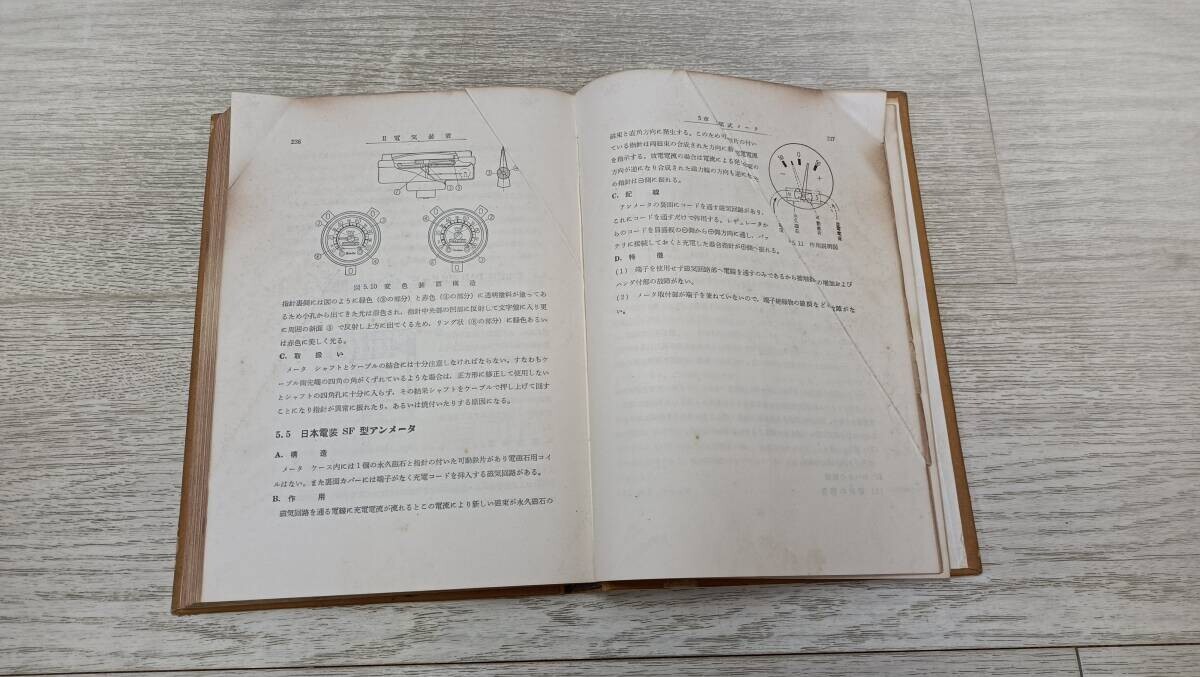 236
II 電 気 装 置
図 5.10 変 色 装 置 構 造
指針裏側には図のように緑色(③の部分)と赤色(④の部分)に透明塗料が塗ってあ
るため小孔から出てきた光は着色され、指針中央部の凹部に反射して文字盤に入り更
に周囲の斜面⑤で反射し上方に出てくるため、リング状(⑥の部分)に緑色あるい
は赤色に美しく光る。
C. 取 扱 い
メータ シャフトとケーブルの結合には十分注意しなければならない。すなわちケ
ーブル両先端の四角の角がくずれているような場合は、正方形に修正して使用しない
とシャフトの四角孔に十分に入らず、その結果シャフトをケーブルで押し上げて回す
ことになり指針が異常に振れたり、あるいは焼付いたりする原因になる。
5.5 日本電装 SF 型アンメータ
A. 構 造
メータ ケース内には1個の永久磁石と指針の付いた可動鉄片があり電磁石用コイ
ルはない。また裏面カバーには端子がなく充電コードを挿入する磁気回路がある。
B. 作 用
磁気回路を通る電線に充電電流が流れるとこの電流により新しい磁束が永久磁石の
5章 電式メータ
237
磁束と直角方向に発生する。このため可 片の付い
ている指針は両磁束の合成された方向に 充電電流
を指示する。放電電流の場合は電流による 束の
方向が逆になり合成された磁力線の方向も逆になるた
め指針は⊖側に振れる。
C. 配 線
アンメータの裏面にコードを通す磁気回路があり、
これにコードを通すだけで作用する。レギュレータか
らのコードを目盛板の⊖側から⊕側方向に通し、バッ
テリに接続しておくと充電した場合指針が⊕側へ振れる。
5.11 作用説明図
D. 特 徴
(1) 端子を使用せず磁気回路部へ電線を通すのみであるから接触抵 の増加および
ハンダ付部の故障がない。
(2) メータ取付部が端子を兼ねていないので、端子絶縁物の破損など 故障がな
い。